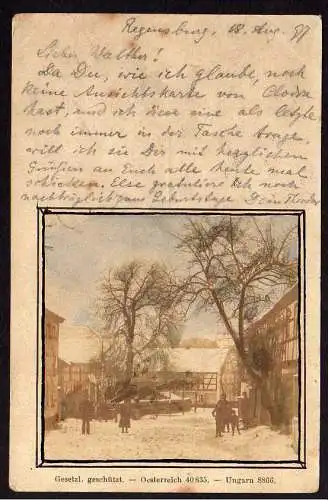 Regensburg, 18. Aug. 97
Lieber Walther!
Da Du, wie ich glaube, noch
keine Ansichtskarte von
hast, und ich diese eine als letzte
noch immer in der Tasche trage,
will ich sie Dir mit herzlichen
Grüßen an Euch alle heute mal
schicken. Else gratuliere ich noch
nachträglich zum Geburtstage. Dein Theodor
Gesetzl. geschützt. — Oesterreich 40 635. — Ungarn 8866.